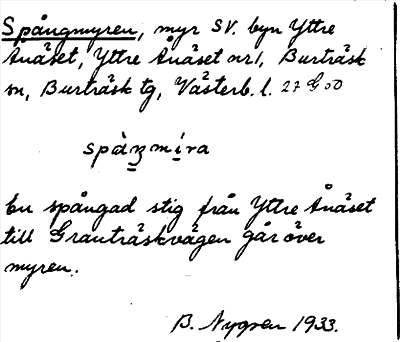 Spångmyren, myr SV. byn Yttre
Ånäset, Yttre Ånäset nr1, Burträsk
sn, Burträsk tg, Västerb. l.
spàŋmíra
En spångad stig från Yttre Ånäset
till Granträskvägen går över
myren.
B. Nygren 1933.